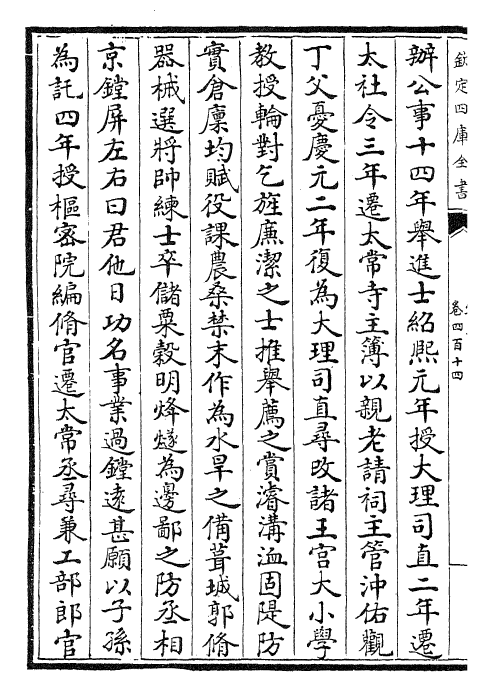 欽定四庫全書
卷四百十四
辦公事十四年舉進士紹熙元年授大理司直二年遷
太社令三年遷太常寺主簿以親老請祠主管沖佑觀
丁父憂慶元二年復為大理司直尋改諸王宫大小學
教授輪對乞旌廉潔之士推舉薦之賞濬溝洫固隄防
實倉廩均賦役課農桑禁末作為水旱之備葺城郭脩
器械選將帥練士卒儲粟穀明烽燧為邊鄙之防丞相
京鏜屏左右曰君他日功名事業過鏜逺甚願以子孫
為託四年授樞宻院編脩官遷太常丞尋兼工部郎官